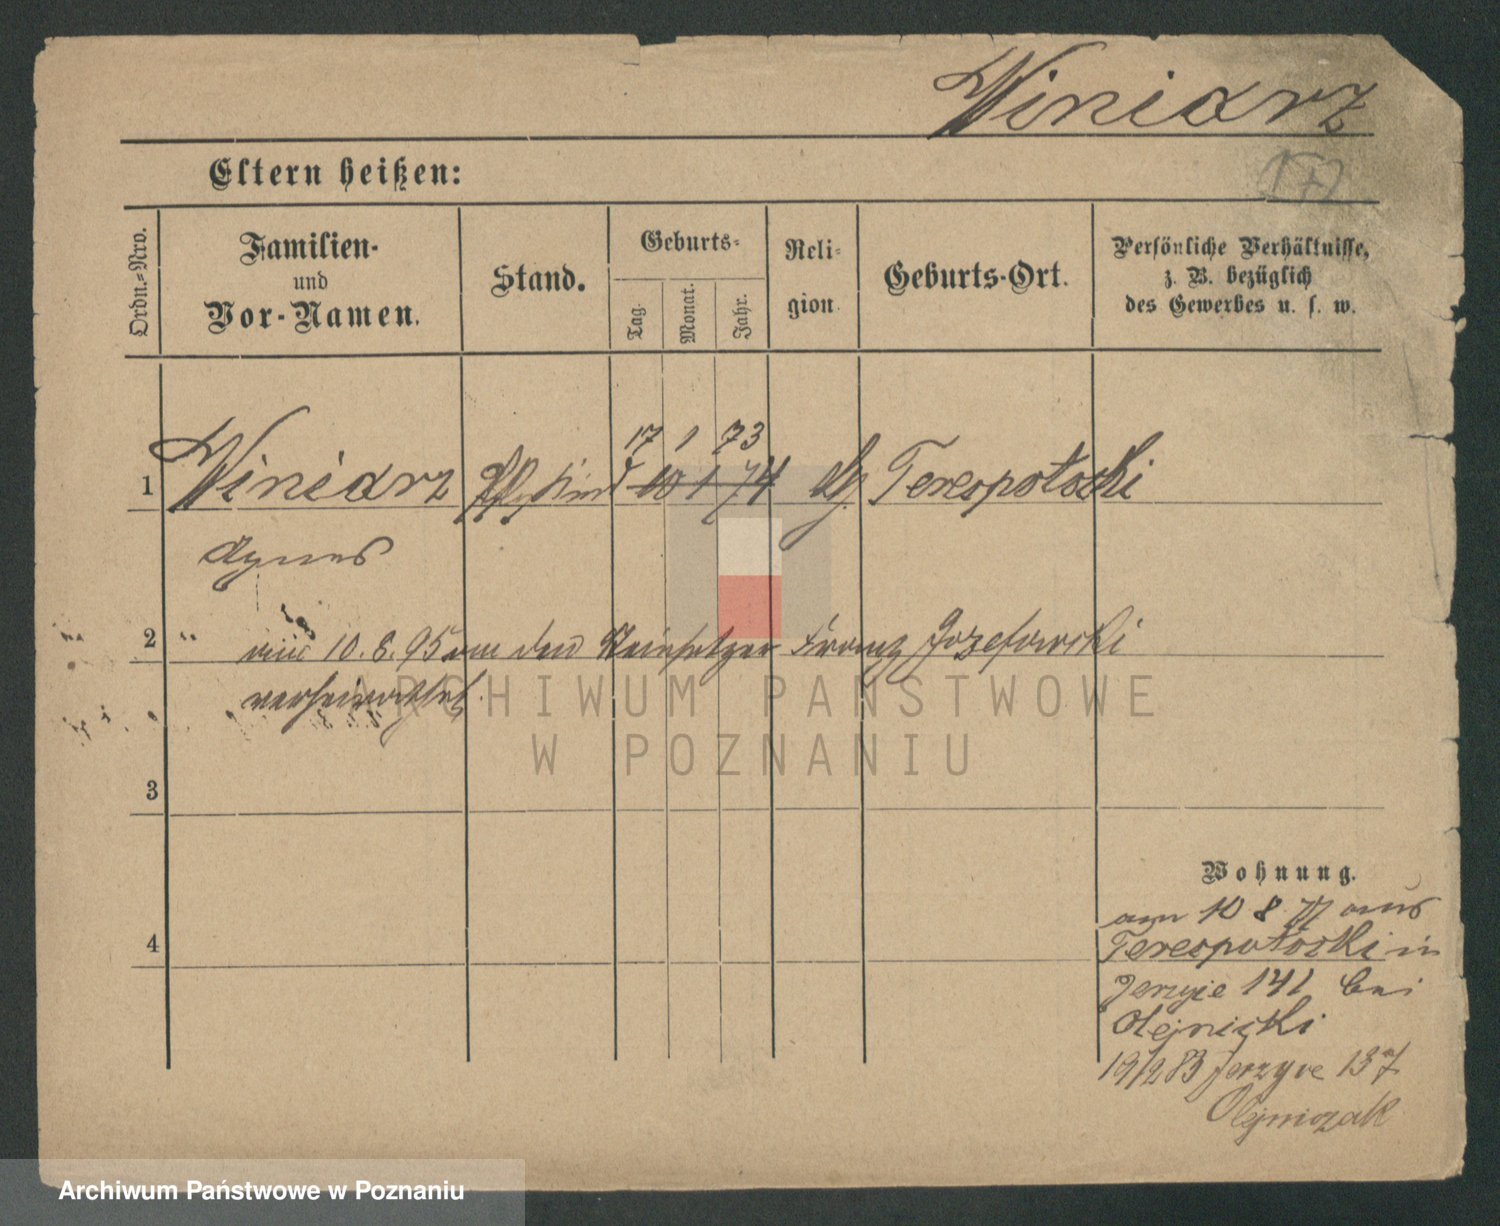 Winiarz
172
Eltern heißen:
Ordn.-Nro.
Familien-
und
Vor-Namen.
Stand.
Geburts-
Tag.
Monat.
Jahr.
Reli-
gion.
Geburts-Ort.
Persönliche Verhältnisse,
z. B. bezüglich
des Gewerbes u. s. w.
17 1 73
1 Winiarz 10 1 74 Terespotocki
Agnes
2 10. 8. 95 an den Steinsetzer Franz Jozefowski
verheirathet.
ARCHIWUM PAŃSTWOWE
W POZNANIU
3
Wohnung.
am 10 8 77 aus
4 Terespotocki in
Jerzyce 141 bei
Olejnicki
19/2 83 Jerzyce 137
Olejniczak
Archiwum Państwowe w Poznaniu